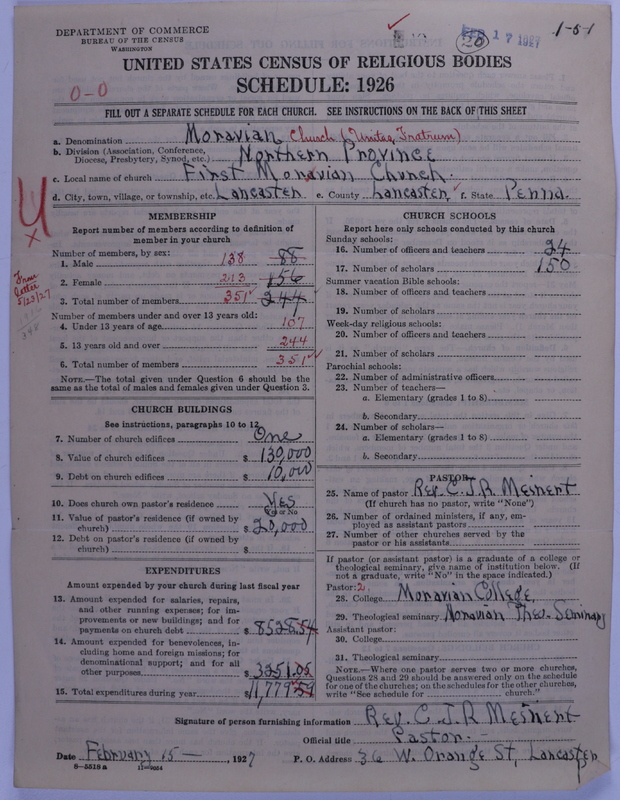 DEPARTMENT OF COMMERCE
BUREAU OF THE CENSUS
WASHINGTON
26
17 1927
1-5-1
UNITED STATES CENSUS OF RELIGIOUS BODIES
SCHEDULE: 1926
0-0
FILL OUT A SEPARATE SCHEDULE FOR EACH CHURCH. SEE INSTRUCTIONS ON THE BACK OF THIS SHEET
a. Denomination Moravian Church (Unitas Fratrum)
b. Division (Association, Conference, Diocese, Presbytery, Synod, etc.) Northern Province
c. Local name of church First Moravian Church.
d. City, town, village, or township, etc. Lancaster e. County Lancaster f. State Penna.
4
X
From letter 5/23/27
MEMBERSHIP
Report number of members according to definition of member in your church
Number of members, by sex:
1. Male 138 88
2. Female 213 156
3. Total number of members 351 244
Number of members under and over 13 years old:
4. Under 13 years of age 107
5. 13 years old and over 244
6. Total number of members 351
NOTE.—The total given under Question 6 should be the same as the total of males and females given under Question 3.
CHURCH BUILDINGS
See instructions, paragraphs 10 to 12
7. Number of church edifices One
8. Value of church edifices $ 130,000
9. Debt on church edifices $ 10,000
10. Does church own pastor's residence Yes
Yes or No
11. Value of pastor's residence (if owned by church) $ 20,000
12. Debt on pastor's residence (if owned by church) $
EXPENDITURES
Amount expended by your church during last fiscal year
13. Amount expended for salaries, repairs, and other running expenses; for improvements or new buildings; and for payments on church debt $ 8528.54
14. Amount expended for benevolences, including home and foreign missions; for denominational support; and for all other purposes $ 3251.05
15. Total expenditures during year $ 11,779 59
CHURCH SCHOOLS
Report here only schools conducted by this church
Sunday schools:
16. Number of officers and teachers 24
17. Number of scholars 150
Summer vacation Bible schools:
18. Number of officers and teachers
19. Number of scholars
Week-day religious schools:
20. Number of officers and teachers
21. Number of scholars
Parochial schools:
22. Number of administrative officers
23. Number of teachers—
a. Elementary (grades 1 to 8)
b. Secondary
24. Number of scholars—
a. Elementary (grades 1 to 8)
b. Secondary
PASTOR
25. Name of pastor Rev. C. J. R. Meinert
(If church has no pastor, write "None")
26. Number of ordained ministers, if any, employed as assistant pastors
27. Number of other churches served by the pastor or his assistants
If pastor (or assistant pastor) is a graduate of a college or theological seminary, give name of institution below. (If not a graduate, write "No" in the space indicated.)
Pastor: 2.
28. College Moravian College
29. Theological seminary Moravian Theo. Seminary
Assistant pastor:
30. College
31. Theological seminary
NOTE.—Where one pastor serves two or more churches, Questions 28 and 29 should be answered only on the schedule for one of the churches; on the schedules for the other churches, write "See schedule for church."
Signature of person furnishing information Rev. C. J. R Meinert
Official title Pastor. -
Date February 15 —, 1927 P. O. Address 36 W. Orange St, Lancaster
8—5518 a 11—9264